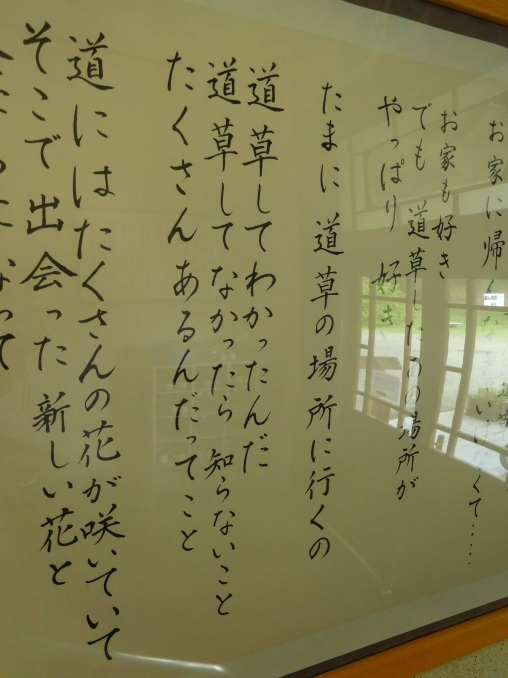 お家に帰
くて‥‥
お家も好き
でも 道草したあの場所が
やっぱり 好き
たまに 道草の場所に行くの
道草してわかったんだ
道草してなかったら 知らないこと
たくさん あるんだってこと
道にはたくさんの花が咲いていて
そこで出会った 新しい花と
なって